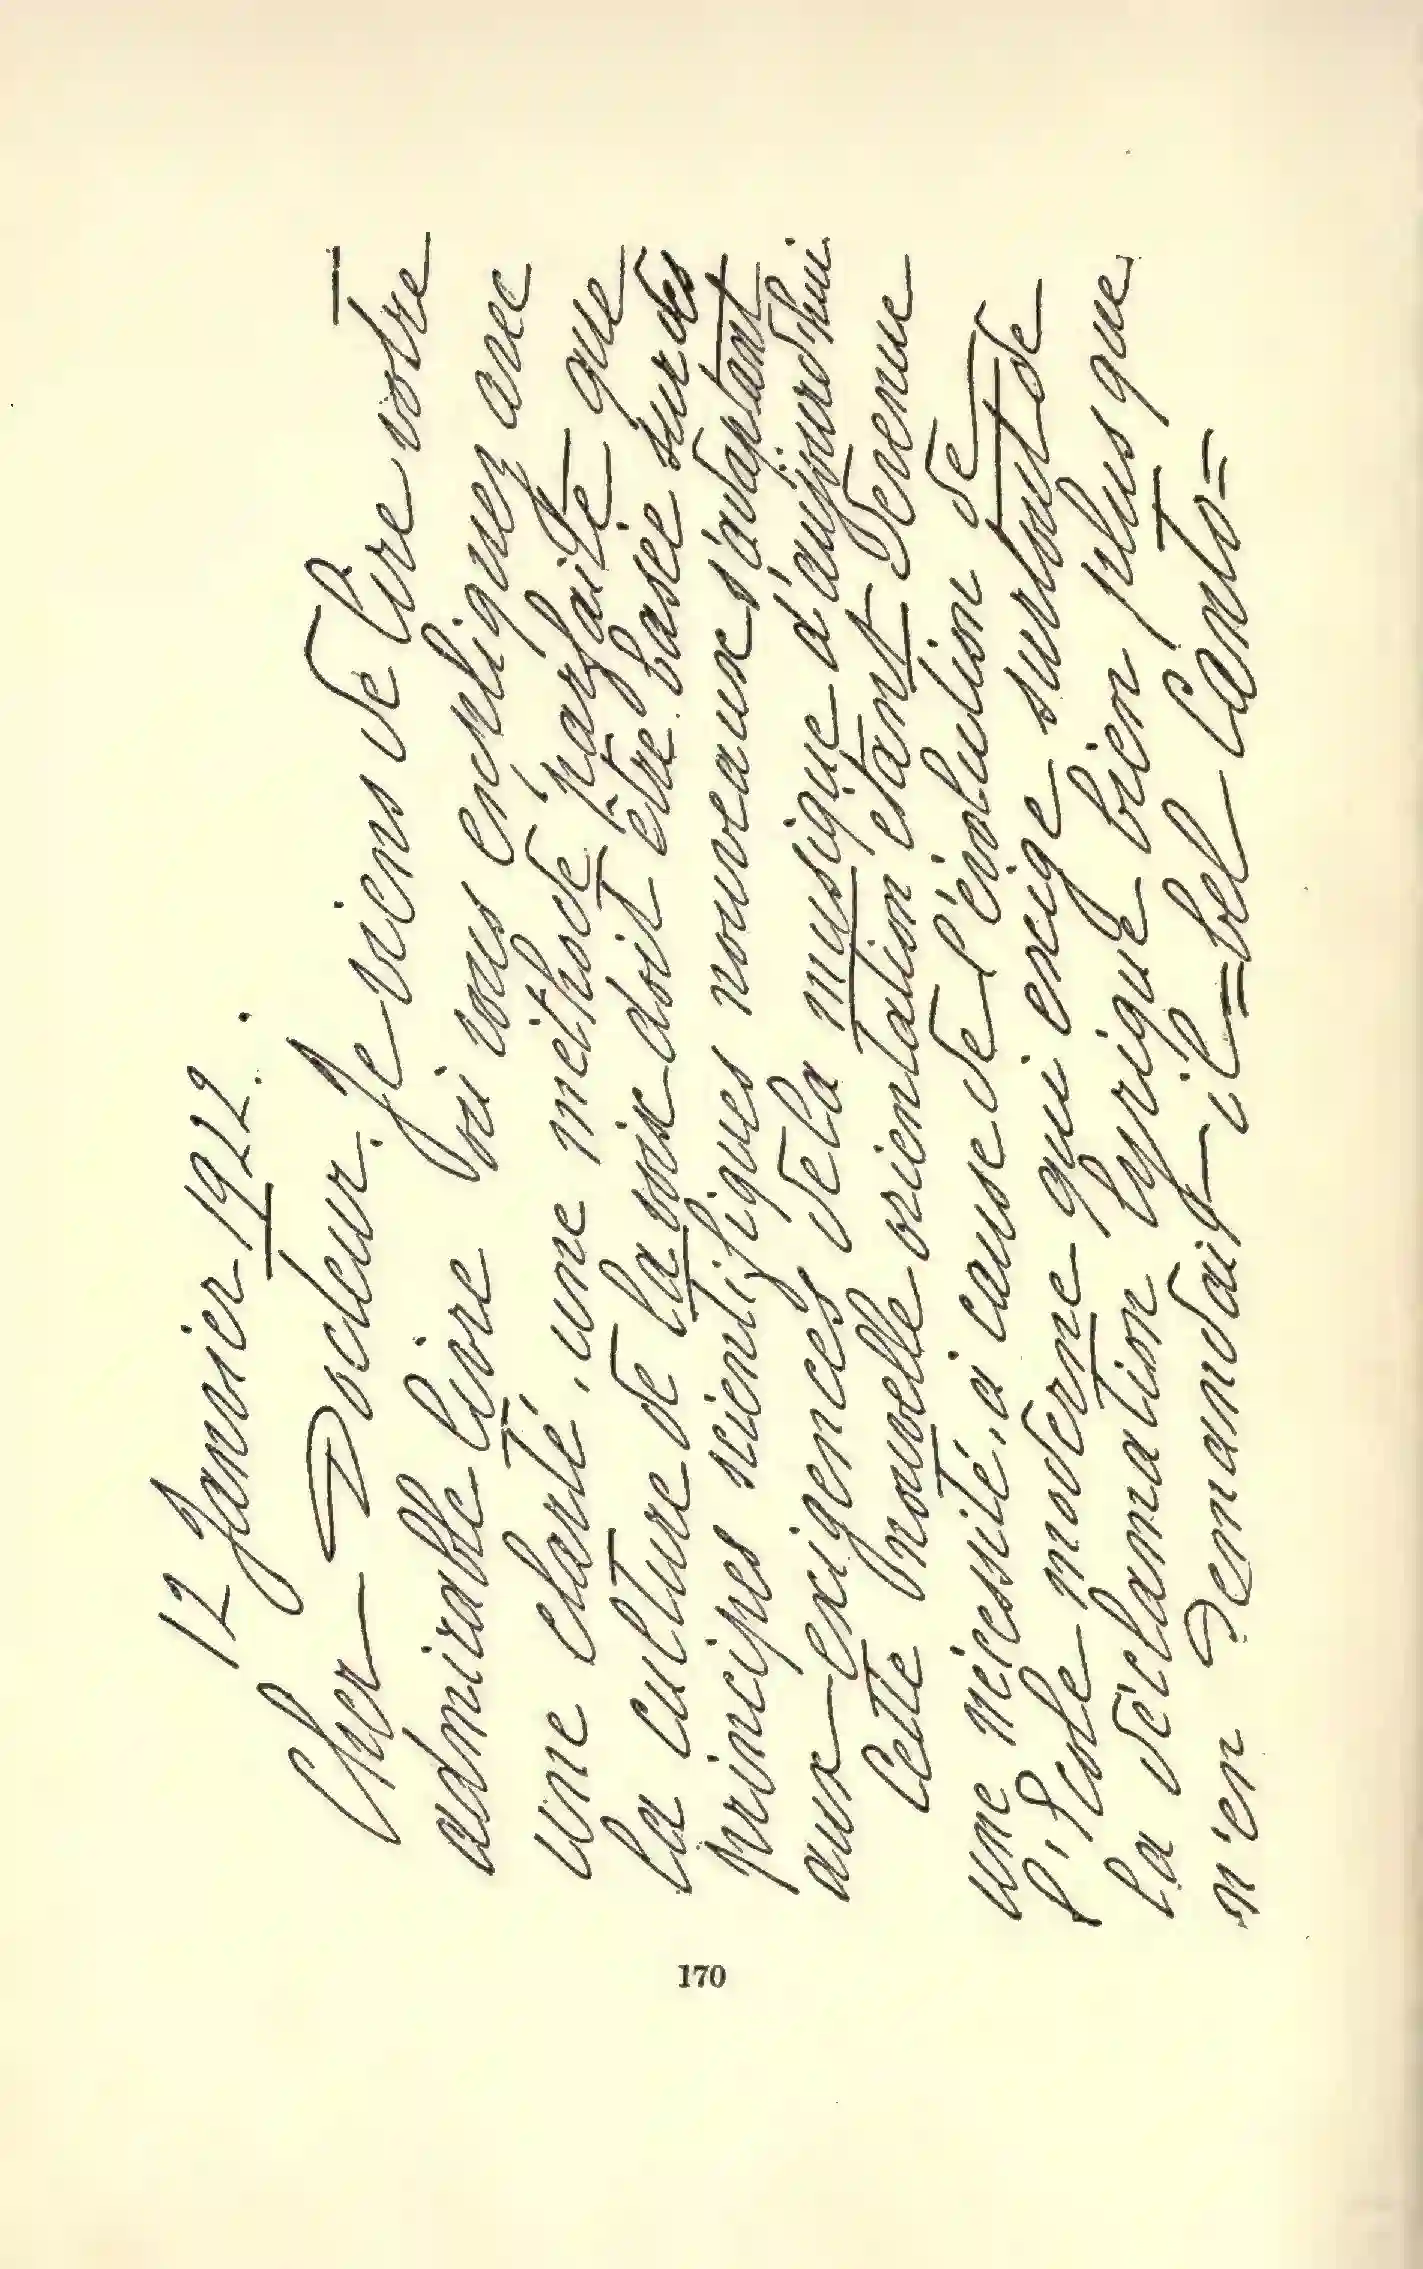 12 Janvier 1922.
Cher Docteur. Je viens de lire votre
admirable livre où vous expliquez avec
une clarté, une méthode parfaite que
la culture de la voix doit être basée sur des
principes scientifiques nouveaux s'adaptant
aux exigences de la musique d'aujourd'hui
Cette nouvelle orientation étant devenue
une nécessité, à cause de l'évolution de
l'École moderne qui exige surtout de
la déclamation lyrique bien plus que
n'en demandait il = bel Canto =
170